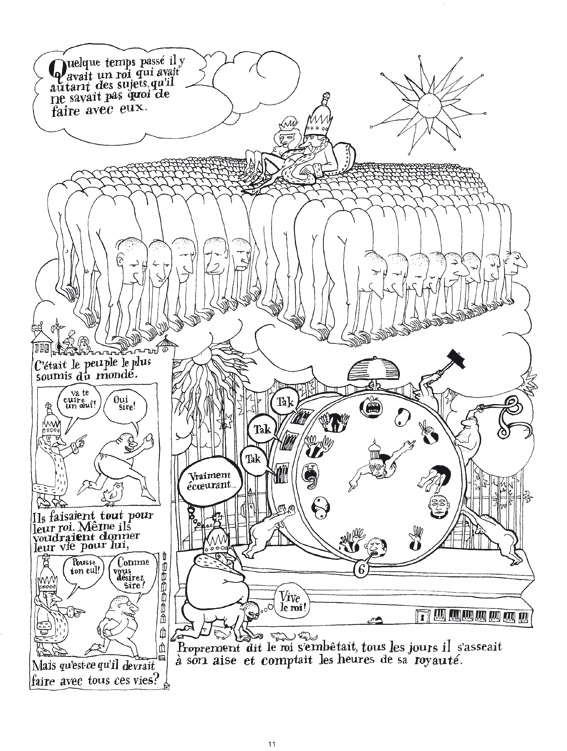 Quelque temps passé il y
avait un roi qui avait
autant des sujets, qu'il
ne savait pas quoi de
faire avec eux.
C'était le peuple le plus
soumis du monde.
Va te
cuire
un œuf!
Oui
sire!
Ils faisaient tout pour
leur roi. Même ils
voudraient donner
leur vie pour lui,
Pousse
ton cul!
Comme
vous
désirez
sire!
Mais qu'est-ce qu'il devrait
faire avec tous ces vies?
Tak
Tak
Tak
Vraiment
écœurant...
6
Vive
le roi!
Proprement dit le roi s'embêtait, tous les jours il s'asseait
à son aise et comptait les heures de sa royauté.
11